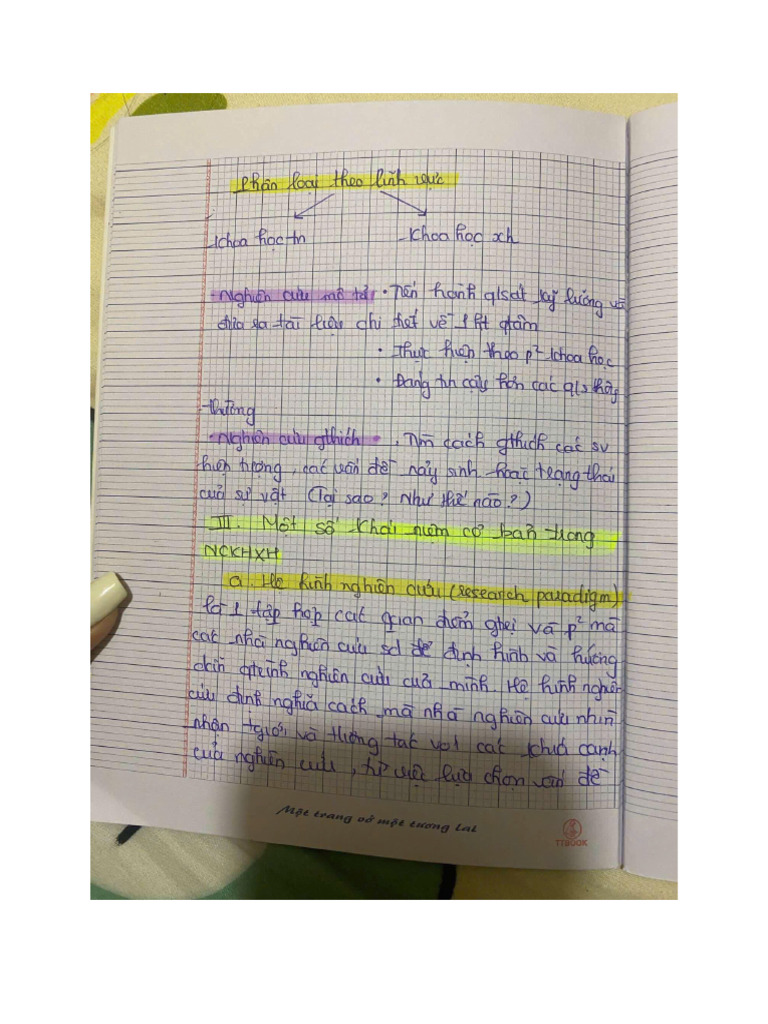 Phân loại theo lĩnh vực
Khoa học tn Khoa học xh
- Nghiên cứu mô tả: • Tiến hành qlsát kỹ lưỡng và
đưa ra tài liệu chi tiết về 1 ht qtâm
• Thực hiện theo p² khoa học
• Đáng tin cậy hơn các qls thông
thường
- Nghiên cứu gthích • . Tìm cách gthích các sv
hiện tượng, các vấn đề nảy sinh hoặc trạng thái
của sự vật (Tại sao? Như thế nào?)
III. Một số khái niệm cơ bản trong
NCKHXH
a. Hệ hình nghiên cứu (research paradigm)
là 1 tập hợp các quan điểm và p² mà
các nhà nghiên cứu sd để định hình và hướng
dẫn qtrình nghiên cứu của mình. Hệ hình nghiên
cứu định nghĩa cách mà nhà nghiên cứu nhìn
nhận tgiới và tương tác với các khía cạnh
của nghiên cứu, từ việc lựa chọn vấn đề
Một trang vở một tương lai
TTBOOK